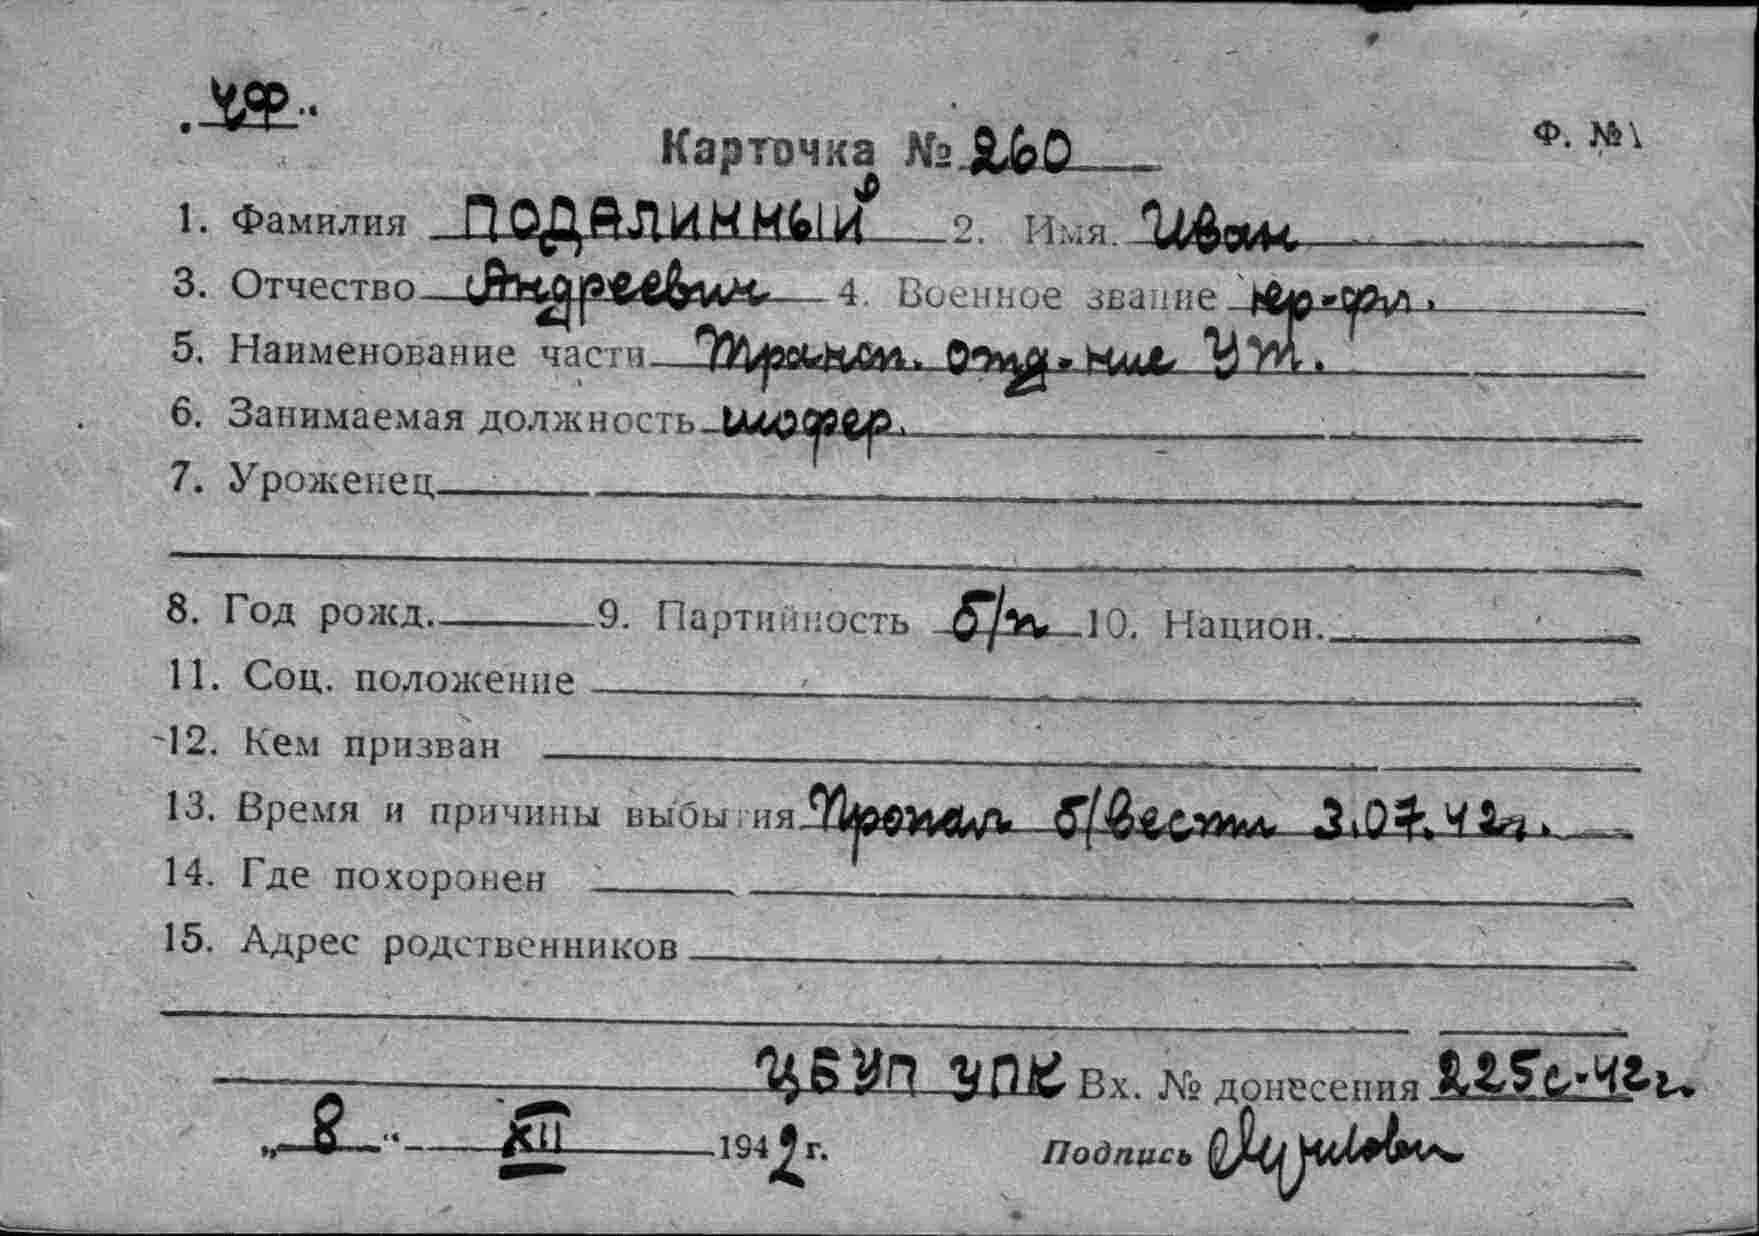 ЧФ
Карточка № 260
Ф. №1
1. Фамилия ПОДАЛИННЫЙ 2. Имя. Иван
3. Отчество Андреевич 4. Военное звание кр-фл.
5. Наименование части Трансп. отд-ние УТ.
6. Занимаемая должность шофер.
7. Уроженец
8. Год рожд. 9. Партийность б/п 10. Национ.
11. Соц. положение
12. Кем призван
13. Время и причины выбытия Пропал б/вести 3.07.42г.
14. Где похоронен
15. Адрес родственников
ЦБУП УПК Вх. № донесения 225с-42г.
„8“ XII 1942 г. Подпись